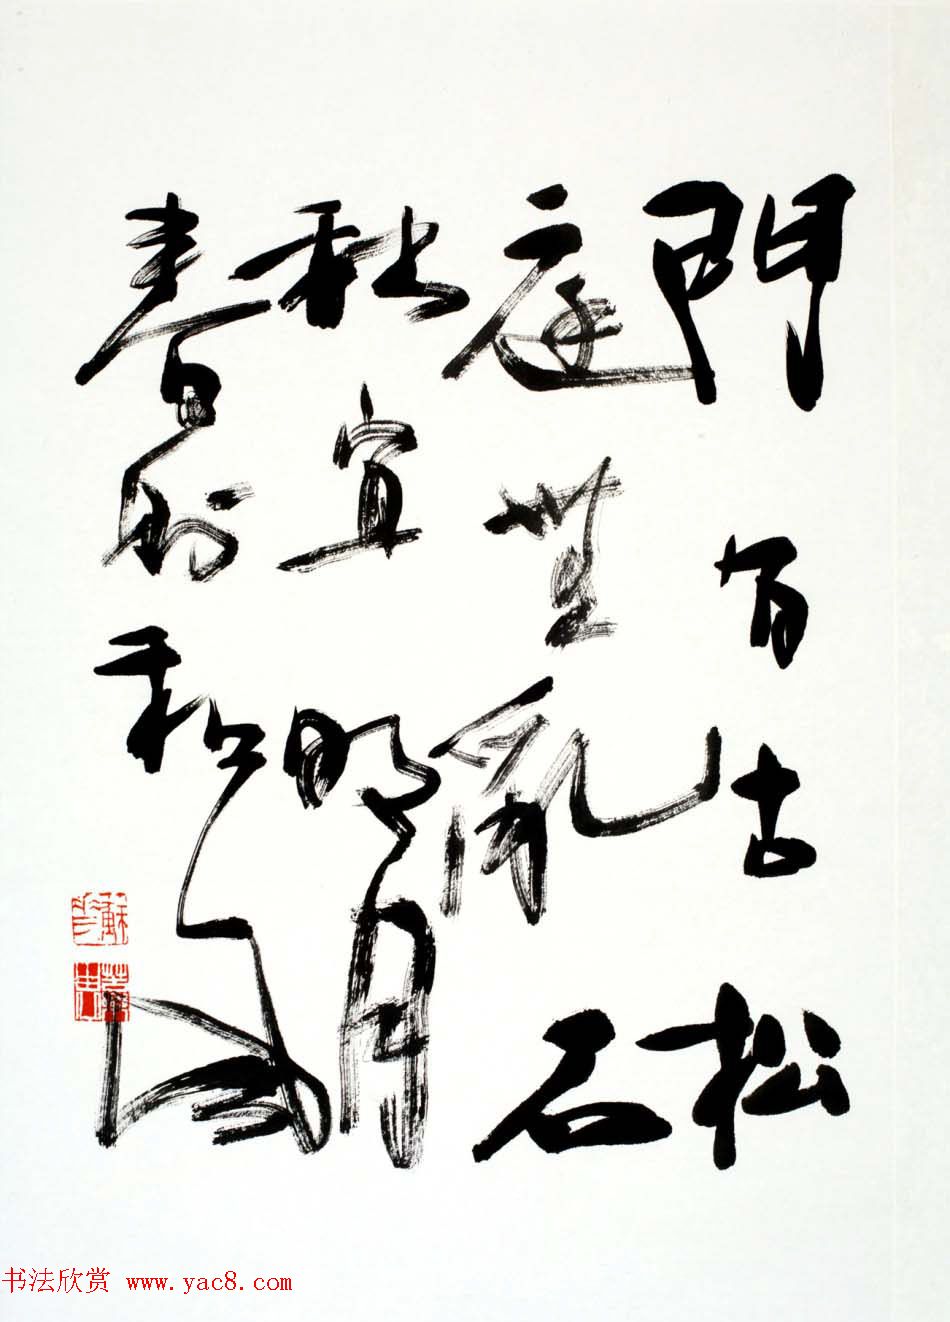 門有古松
庭無亂石
秋宜明月
春則和風
書法欣赏 www.yac8.com